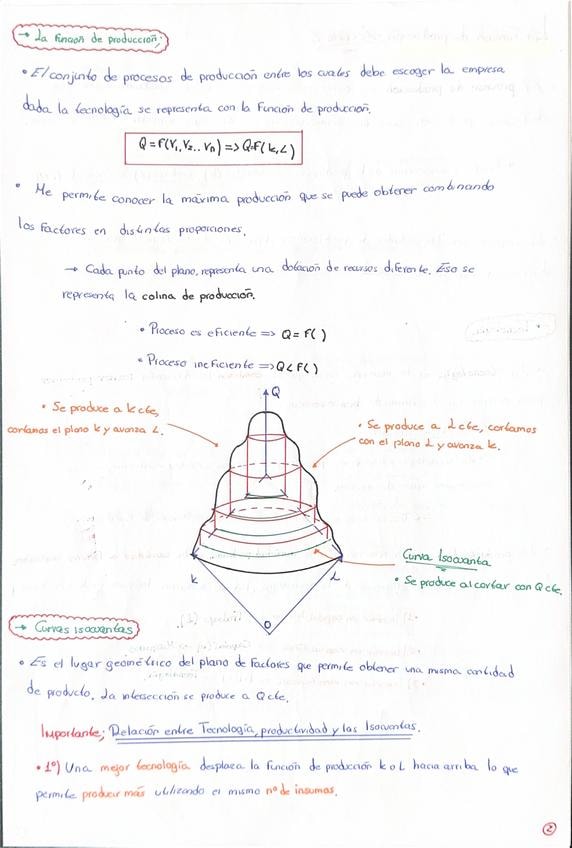 → La función de producción;
• El conjunto de procesos de producción entre los cuales debe escoger la empresa
dada la tecnología se representa con la función de producción.
Q = F(V₁, V₂.. Vn) => Q=F(K, L)
• Me permite conocer la máxima producción que se puede obtener combinando
los factores en distintas proporciones.
→ Cada punto del plano, representa una dotación de recursos diferente. Eso se
representa la colina de producción.
• Proceso es eficiente => Q = F( )
• Proceso ineficiente => Q < F( )
Q
• Se produce a k cte,
cortamos el plano k y avanza L.
• Se produce a L cte, cortamos
con el plano L y avanza k.
Curva Isocuanta
• Se produce al cortar con Q cte.
K
L
O
→ Curvas isocuantas
• Es el lugar geométrico del plano de factores que permite obtener una misma cantidad
de producto. La intersección se produce a Q cte.
Importante; Relación entre Tecnología, productividad y las Isocuantas.
• 1º) Una mejor tecnología desplaza la función de producción k o L hacia arriba lo que
permite producir más utilizando el mismo nº de insumos.
2